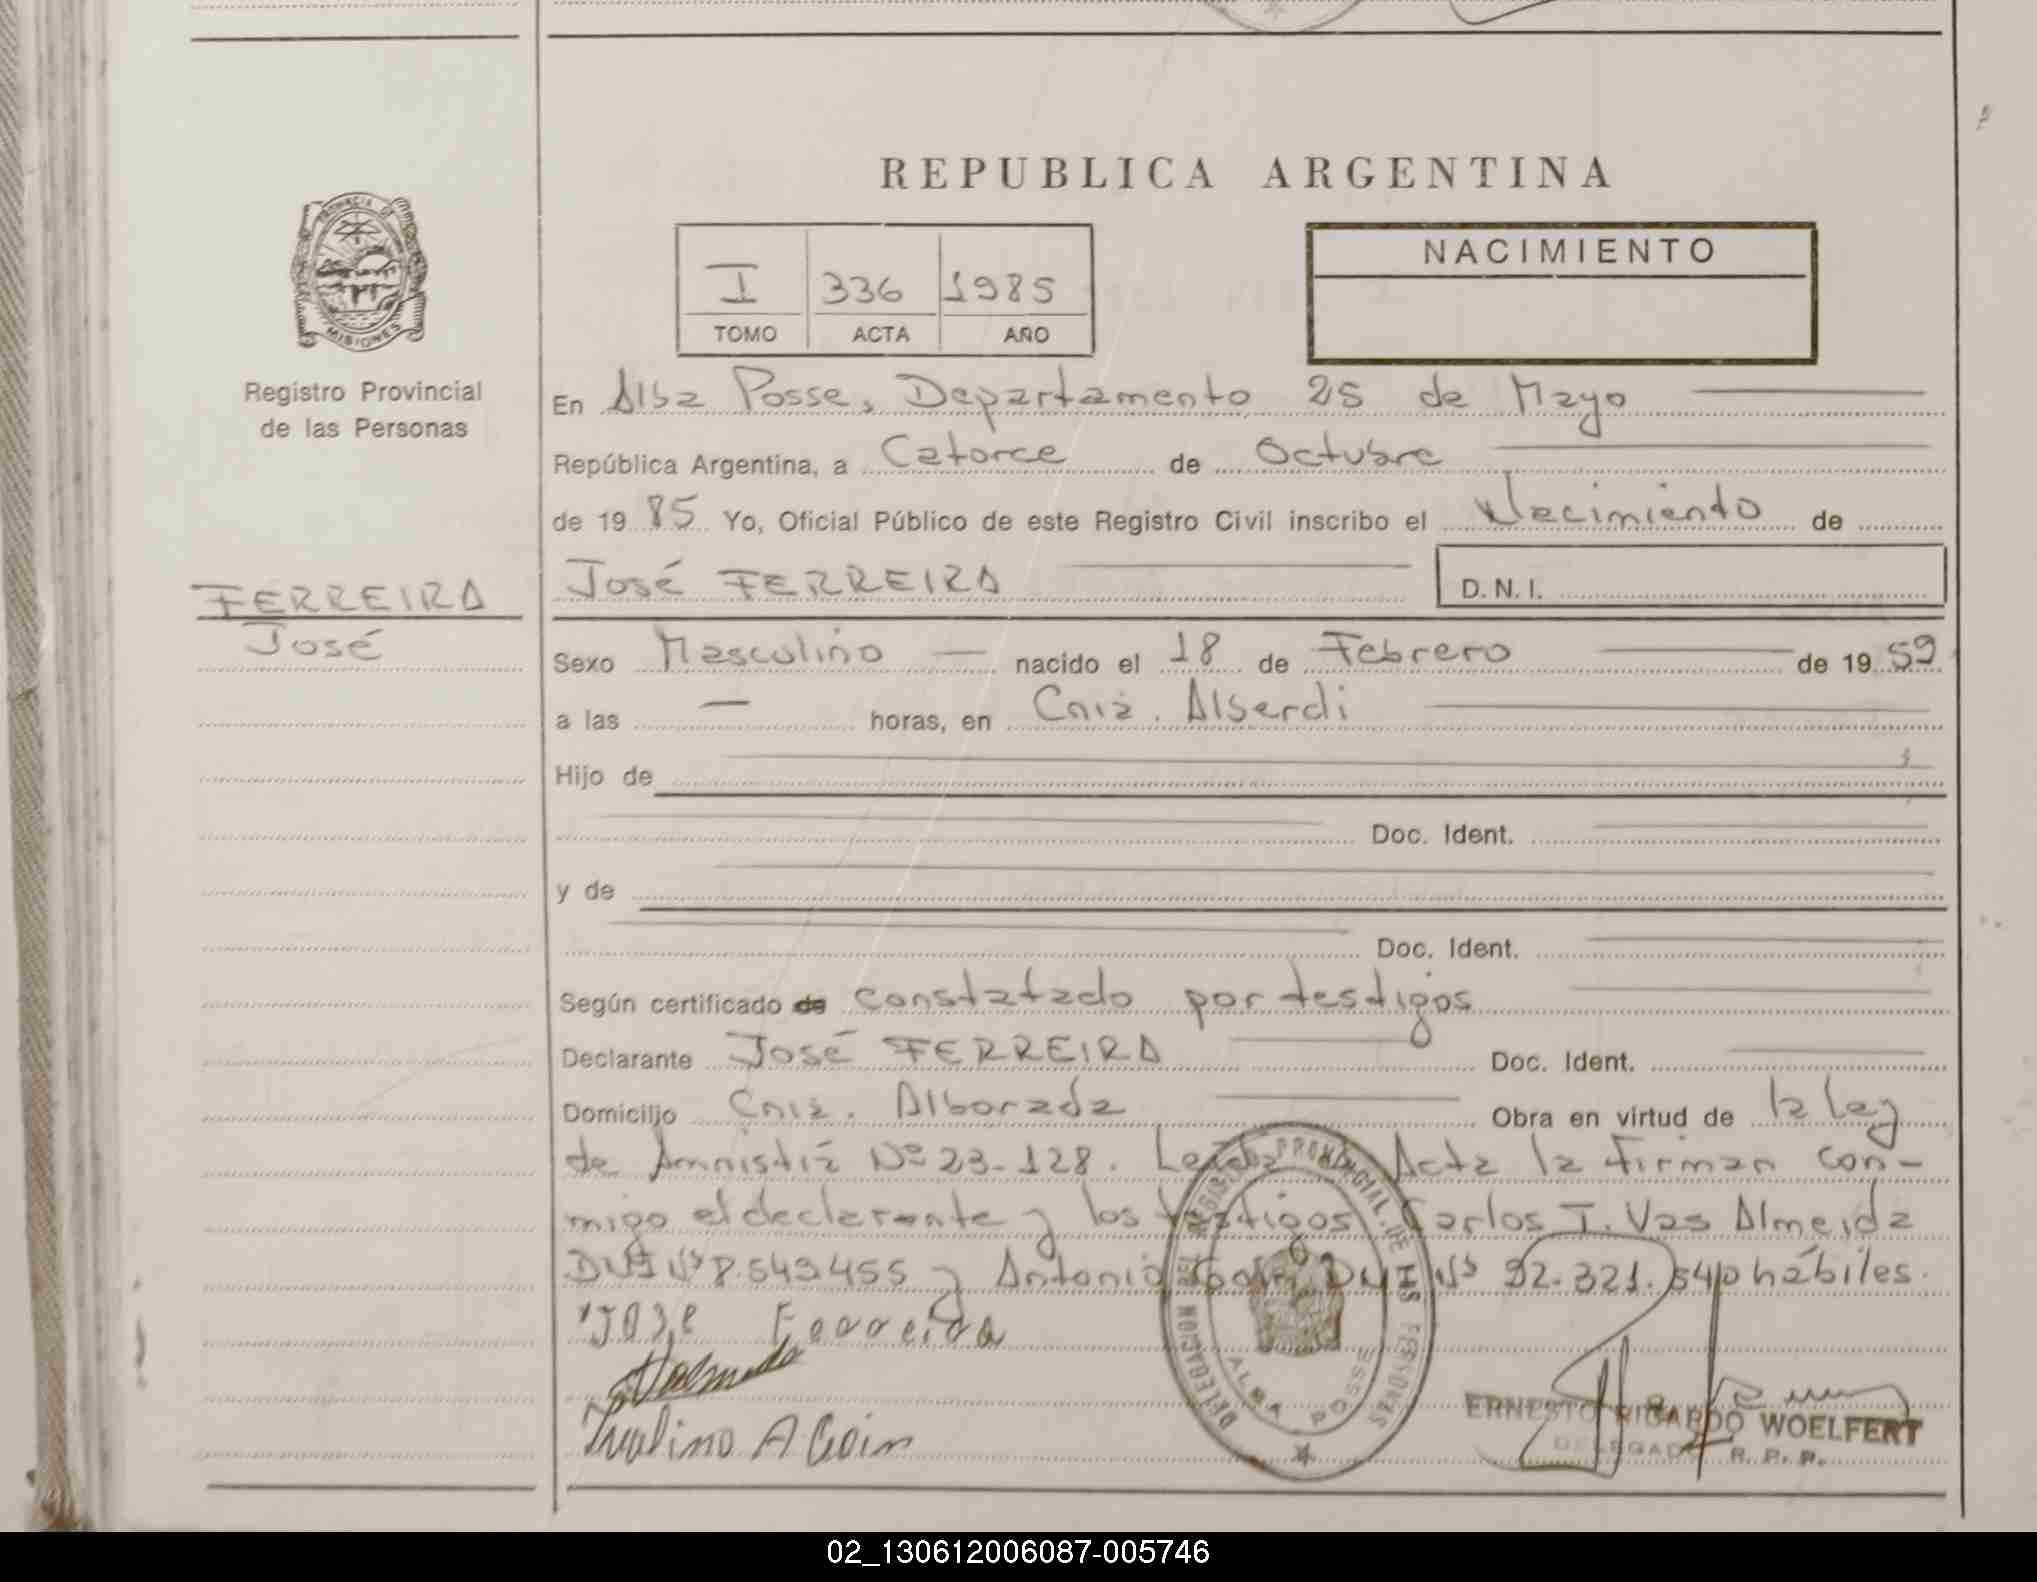 REPUBLICA ARGENTINA
PROVINCIA DE
MISIONES
Registro Provincial
de las Personas
I 336 1985
TOMO ACTA AÑO
NACIMIENTO
En Alba Posse, Departamento 25 de Mayo
República Argentina, a Catorce de Octubre
de 19 85 Yo, Oficial Público de este Registro Civil inscribo el Nacimiento de
José FERREIRA D.N.I.
FERREIRA
José
Sexo Masculino — nacido el 18 de Febrero de 19 59
a las — horas, en Cniá. Alberdi
Hijo de
Doc. Ident.
y de
Doc. Ident.
Según certificado de constatado por testigos
Declarante José FERREIRA Doc. Ident.
Domicilio Cniá. Alborada Obra en virtud de la Ley
de Amnistía Nº 23-128. Leída Acta la firman con-
migo el declarante y los testigos Carlos I. Vas Almeida
DNI Nº 8.549.455 y Antonio DNI Nº 92.321.540 hábiles.
José Ferreira
A Goin
REGISTRO PROVINCIAL DE LAS PERSONAS
DELEGACION
ALBA POSSE
ERNESTO RICARDO WOELFERT
DELEGADO R. P. P.
02_130612006087-005746